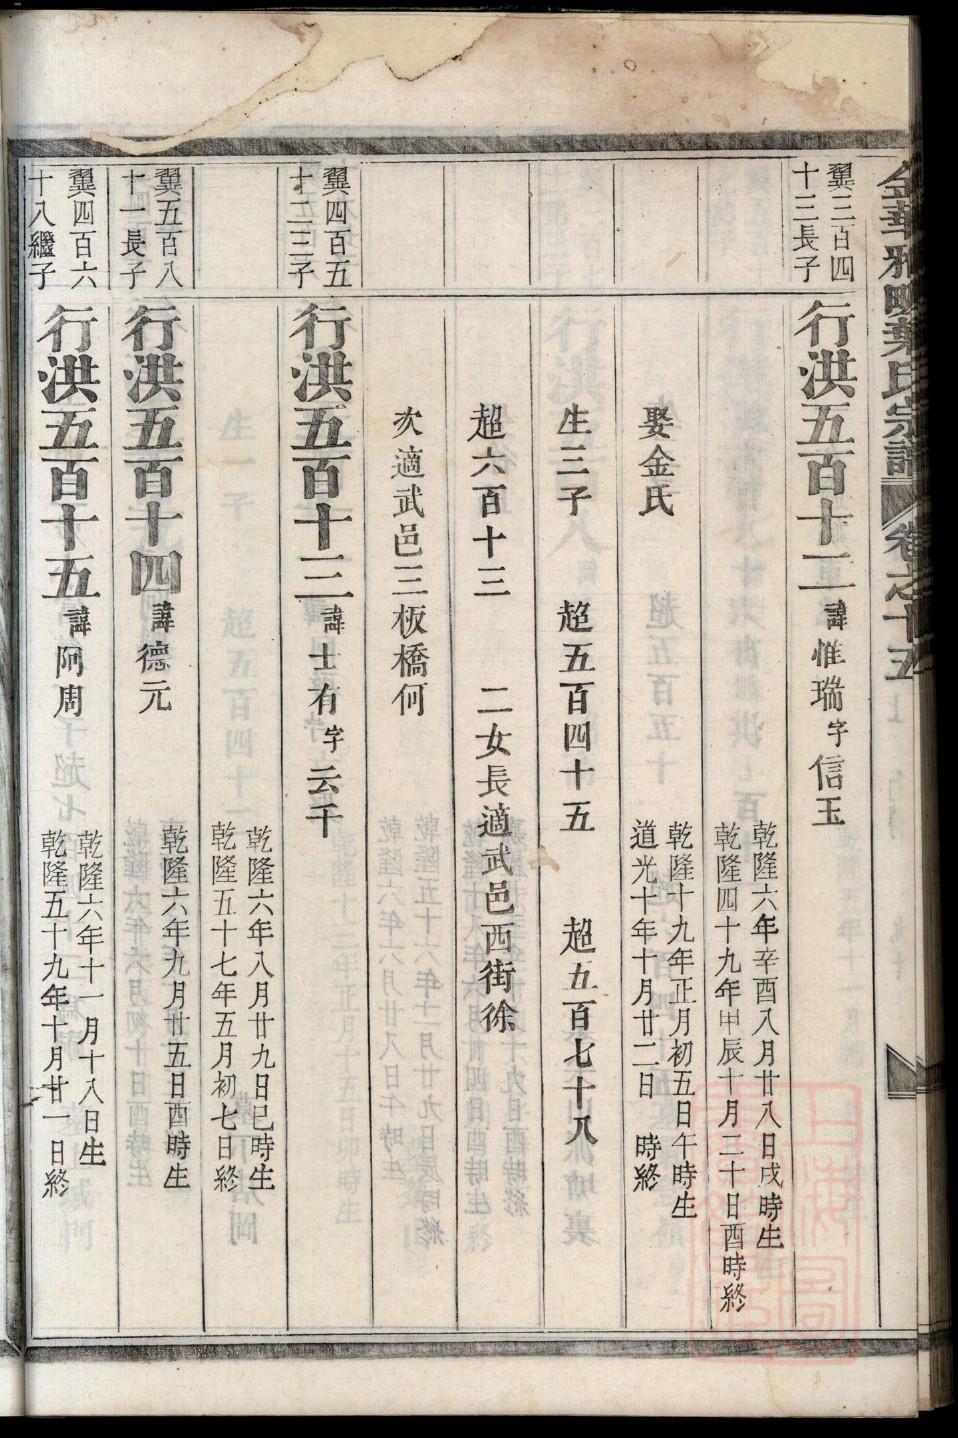 金華雅畈葉氏宗譜 卷之十五
翼三百四
十三長子
行洪五百十二 諱惟瑞字信玉
乾隆六年辛酉八月廿八日戌時生
乾隆四十九年甲辰十月二十日酉時終
娶金氏
乾隆十九年正月初五日午時生
道光十年十月廿二日 時終
生三子 超五百四十五 超五百七十八
超六百十三 二女長適武邑西街徐
次適武邑三板橋何
翼四百五
十二三子
行洪五百十三 諱士有字云千
乾隆六年八月廿九日巳時生
乾隆五十七年五月初七日終
翼五百八
十一長子
行洪五百十四 諱德元
乾隆六年九月廿五日酉時生
翼四百六
十八繼子
行洪五百十五 諱阿周
乾隆六年十一月十八日生
乾隆五十九年十月廿一日終